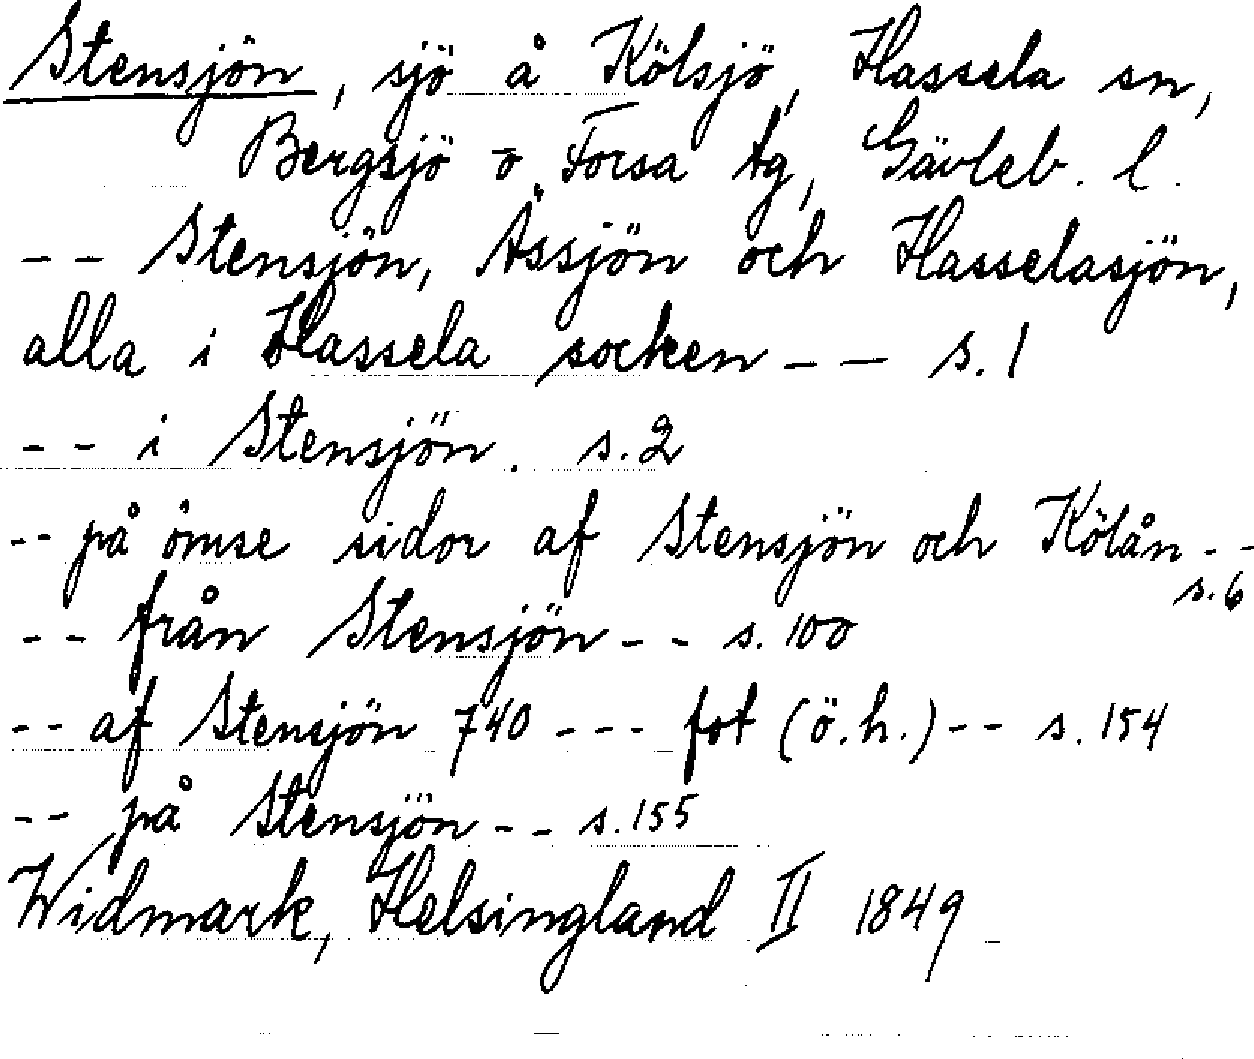 Stensjön, sjö å Kölsjö, Hassela sn,
Bergsjö o. Forsa tg, Gävleb. l.
-- Stensjön, Åssjön och Hasselasjön,
alla i Hassela socken -- s. 1
-- i Stensjön. s. 2
-- på ömse sidor af Stensjön och Kölån --
s. 6
-- från Stensjön -- s. 100
-- af Stensjön 740 --- fot (ö.h.) -- s. 154
-- på Stensjön -- s. 155
Widmark, Helsingland II 1849